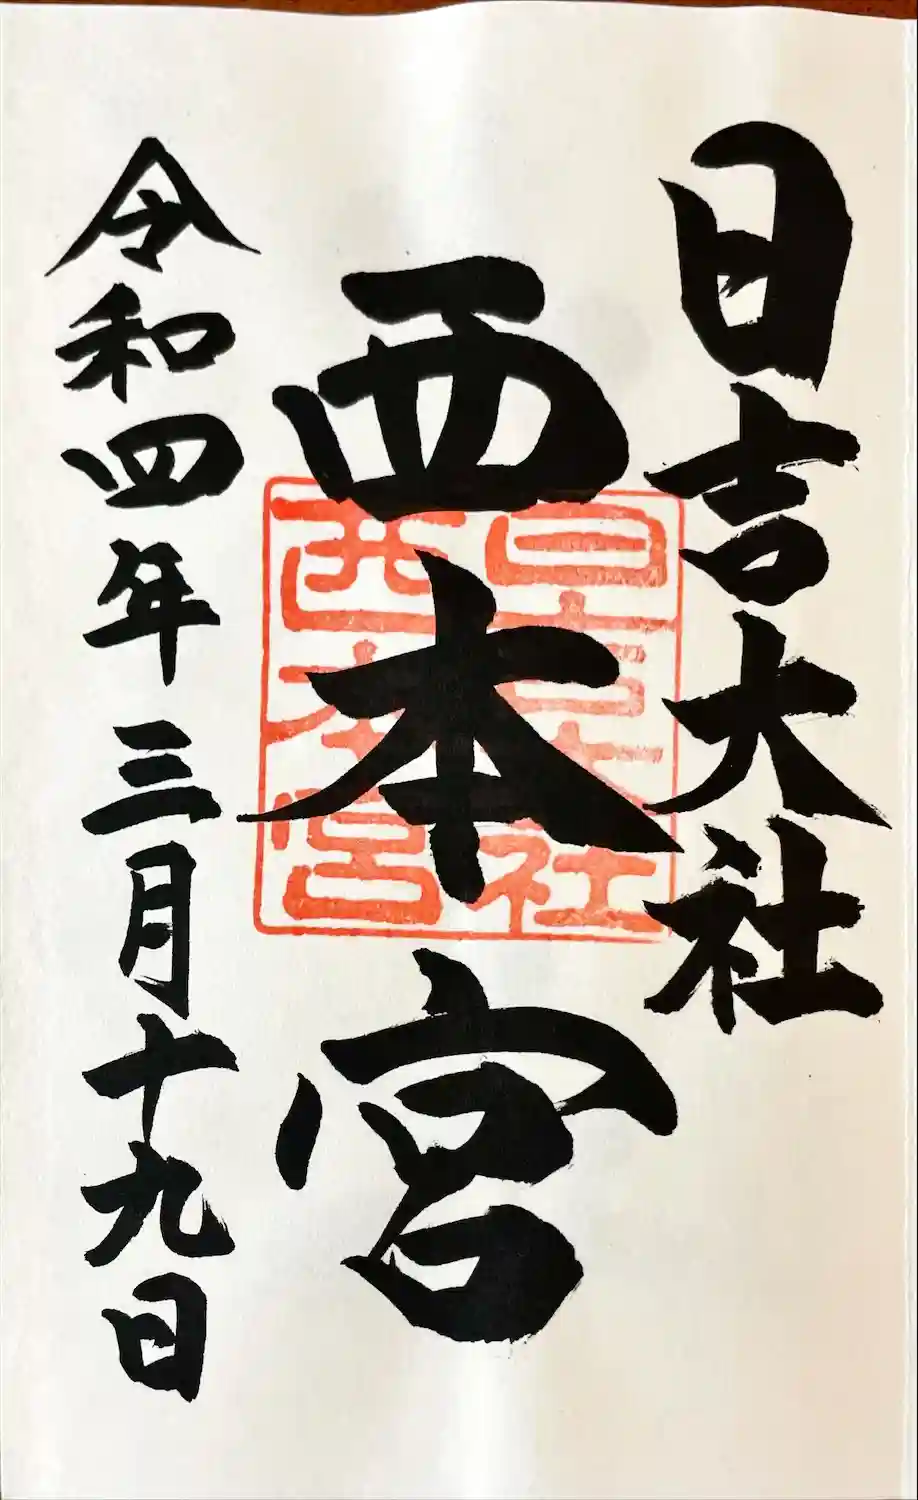 日吉大社
西本宮
日吉大社
西本宮
令和四年三月十九日